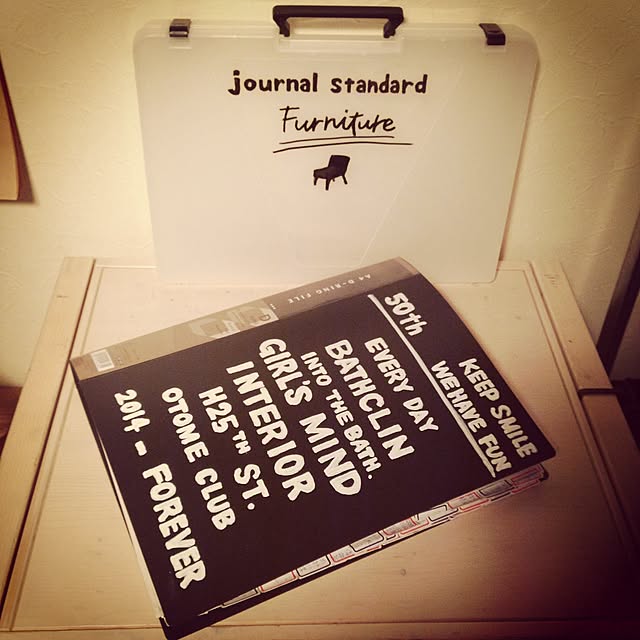 journal standard
Furniture
A4 D-RING FILE
KEEP SMILE
WE HAVE FUN
50th
EVERY DAY
BATHCLIN
INTO THE BATH.
GIRL'S MIND
INTERIOR
H25TH ST.
OTOME CLUB
2014 - FOREVER